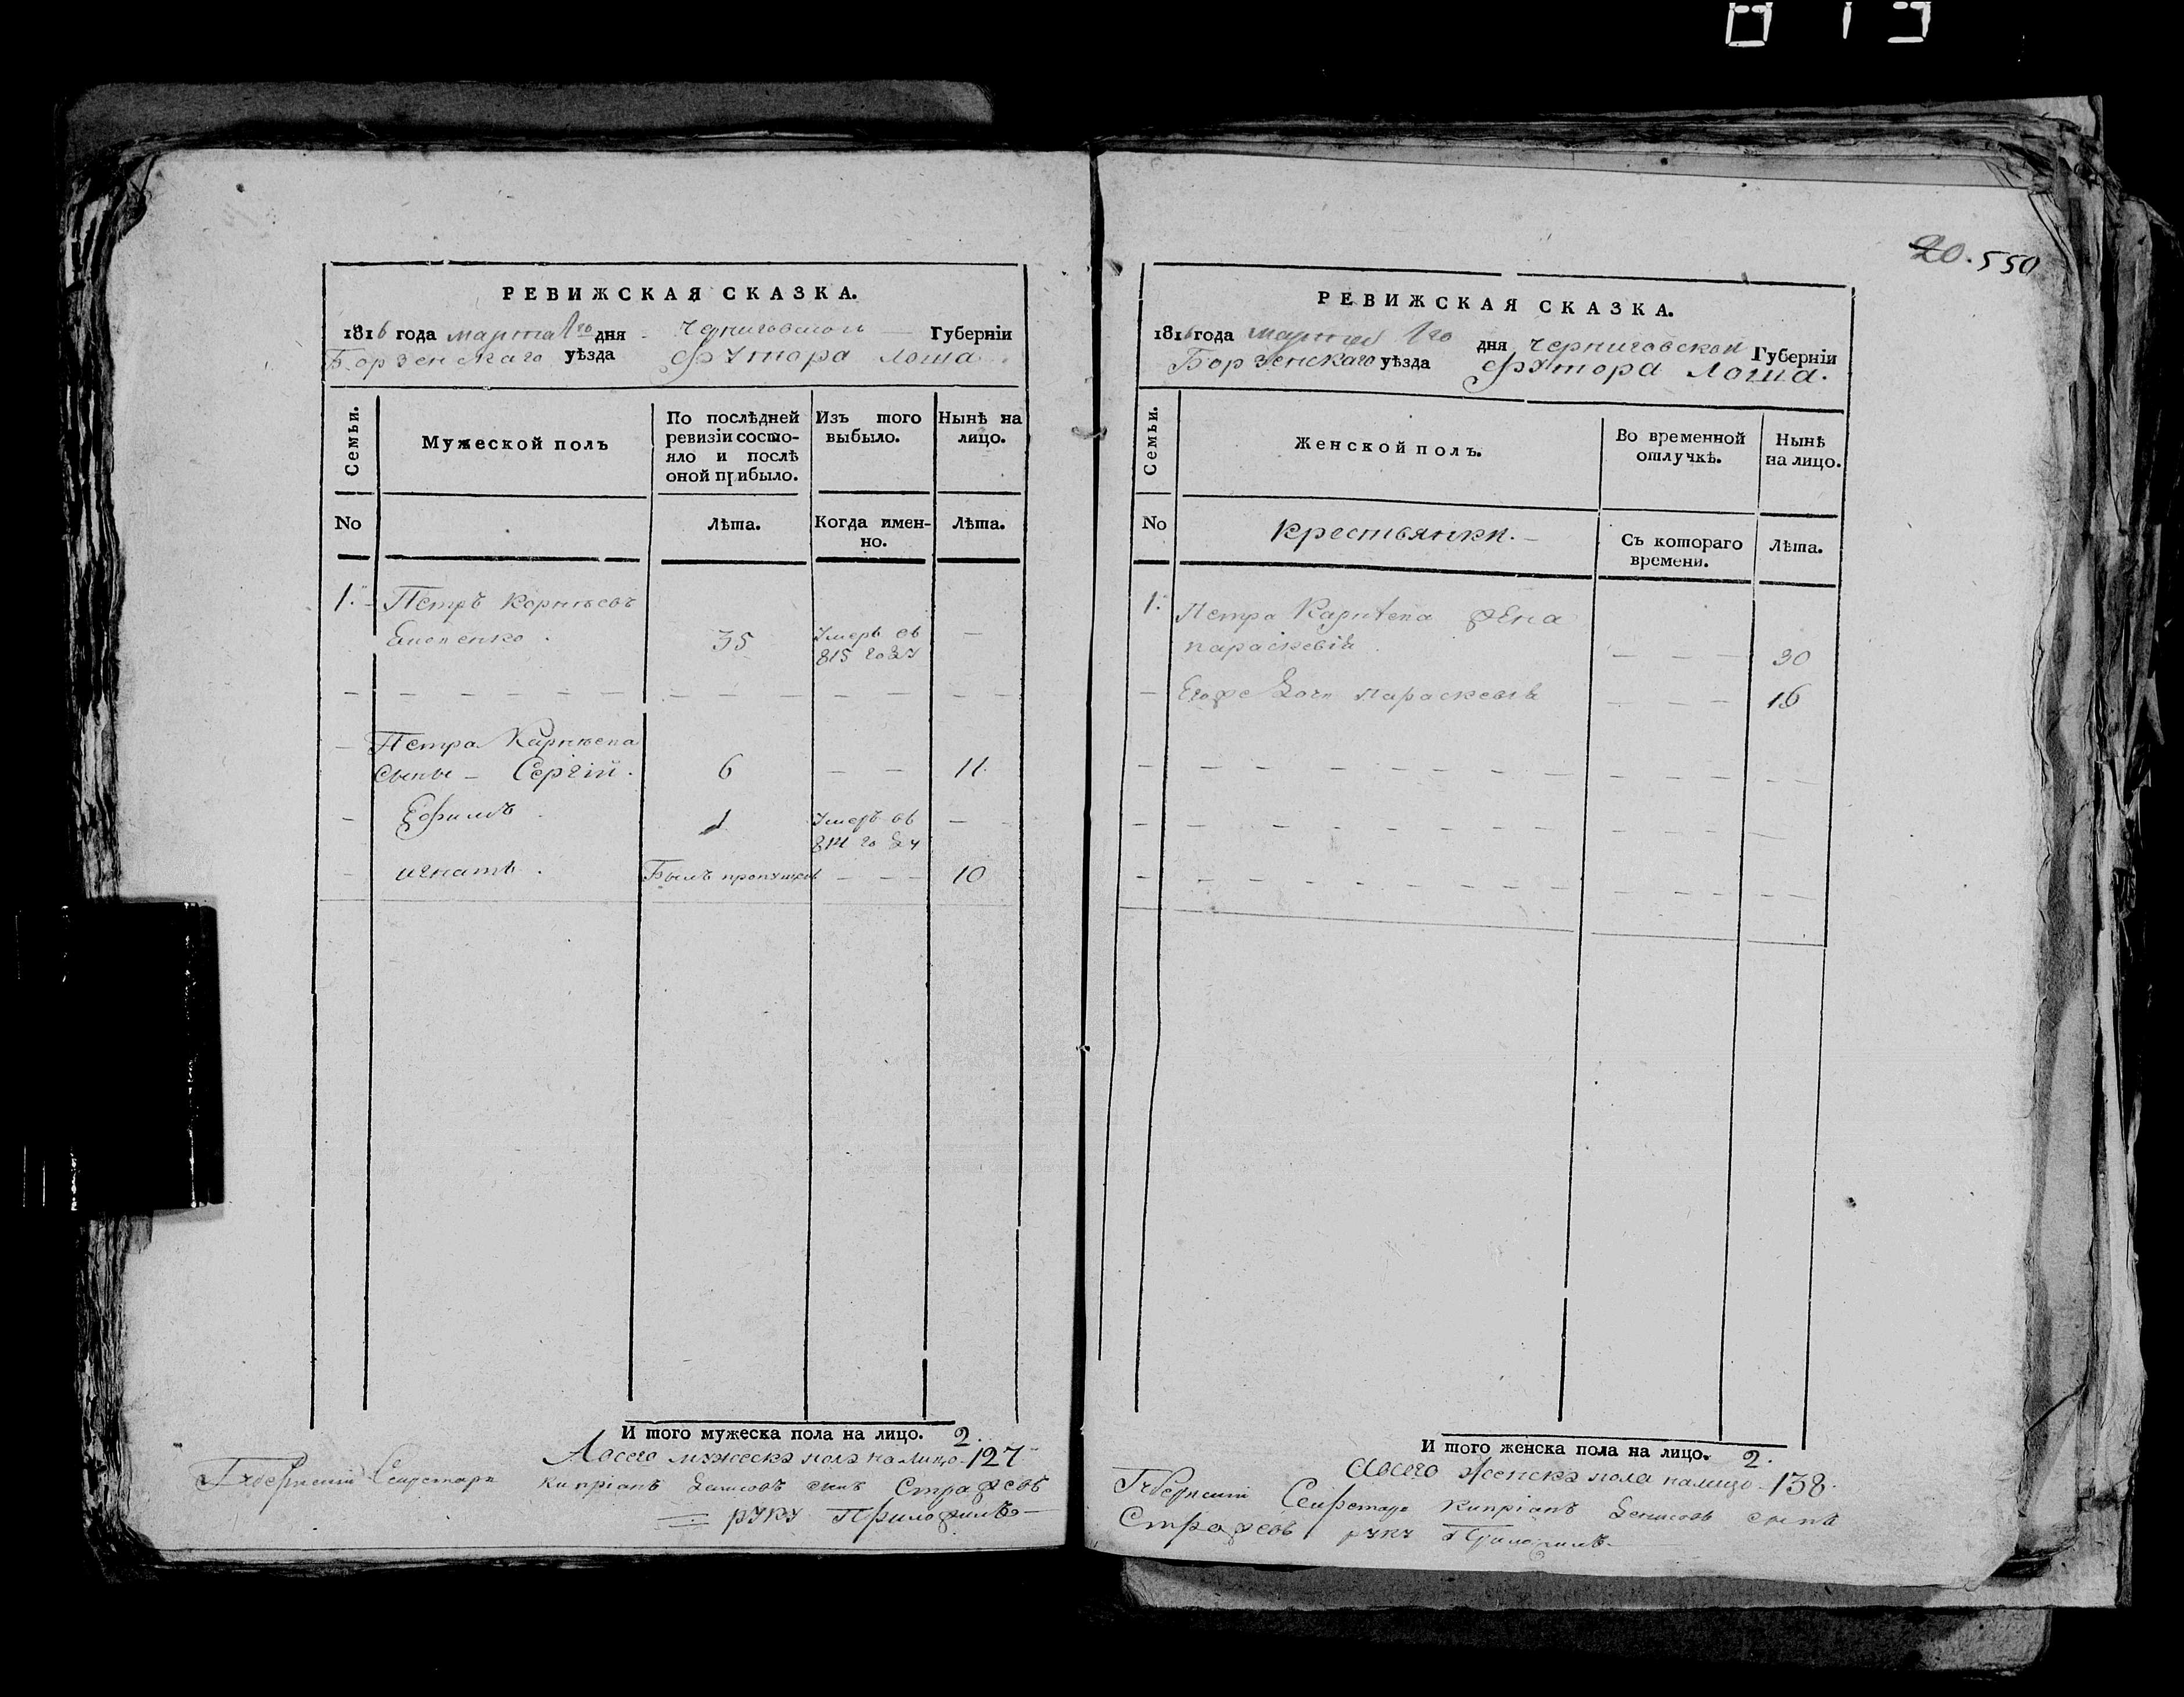 20. 550
РЕВИЖСКАЯ СКАЗКА.
1816 года марта 1го дня Черниговской Губерніи
Борзенскаго уѣзда Футора Лоша
Семьи.
Мужеской полъ
По послѣдней ревизіи состояло и послѣ оной прибыло.
Изъ того выбыло.
Нынѣ на лицо.
No
Лѣта.
Когда именно.
Лѣта.
1. Петръ Корнѣевъ
35 Умеръ въ
815 году
Петра Карнѣева
сыны Сергій. 6 11.
Ефимъ 1 Умеръ въ
814 году
игнатъ. Былъ пропущенъ 10
И того мужеска пола на лицо. 2.
Авсего мужеска пола налицо 127
Губернскій Секретарь Кипріанъ Денисовъ сынъ Стражевъ
руку Приложилъ
РЕВИЖСКАЯ СКАЗКА.
1816 года марта 1го дня Черниговской Губерніи
Борзенскаго уѣзда Футора Лоша.
Семьи.
Женской полъ.
Во временной отлучкѣ.
Нынѣ на лицо.
No
крестьянки.
Съ котораго времени.
Лѣта.
1. Петра Карнѣева жена
параскевія 30
Егоже дочь параскевія 16
И того женска пола на лицо. 2.
Авсего женска пола налицо 138.
Губернскій Секретарь Кипріанъ Денисовъ сынъ
Стражевъ руку Приложилъ